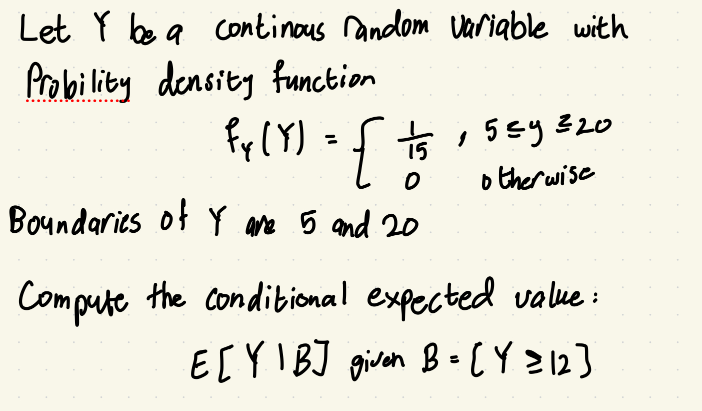 Let Y be a continous random variable with
Probility density function
f_Y(Y) = { 1/15 , 5 ≤ y ≤ 20
0 otherwise
Boundaries of Y are 5 and 20
Compute the conditional expected value:
E[Y|B] given B = [Y ≥ 12]